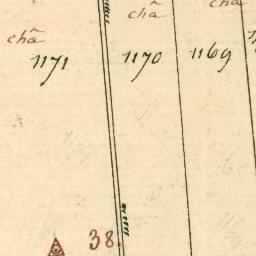 chã chã chã
1171 1170 1169
38.